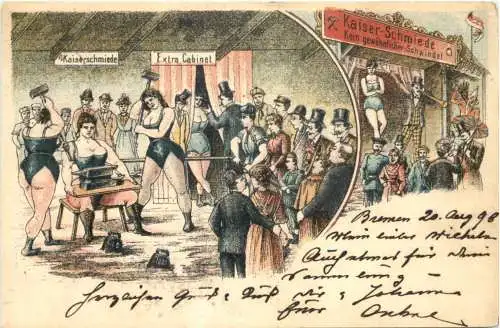 Kaiserschmiede
Extra Cabinet
Kaiser-Schmiede
Kein gewöhnlicher Schwindel
Bremen 20. Aug 98
Mein lieber Wilhelm
Auch etwas für dein
Sammlung
Herzlichen Gruß
Johanna